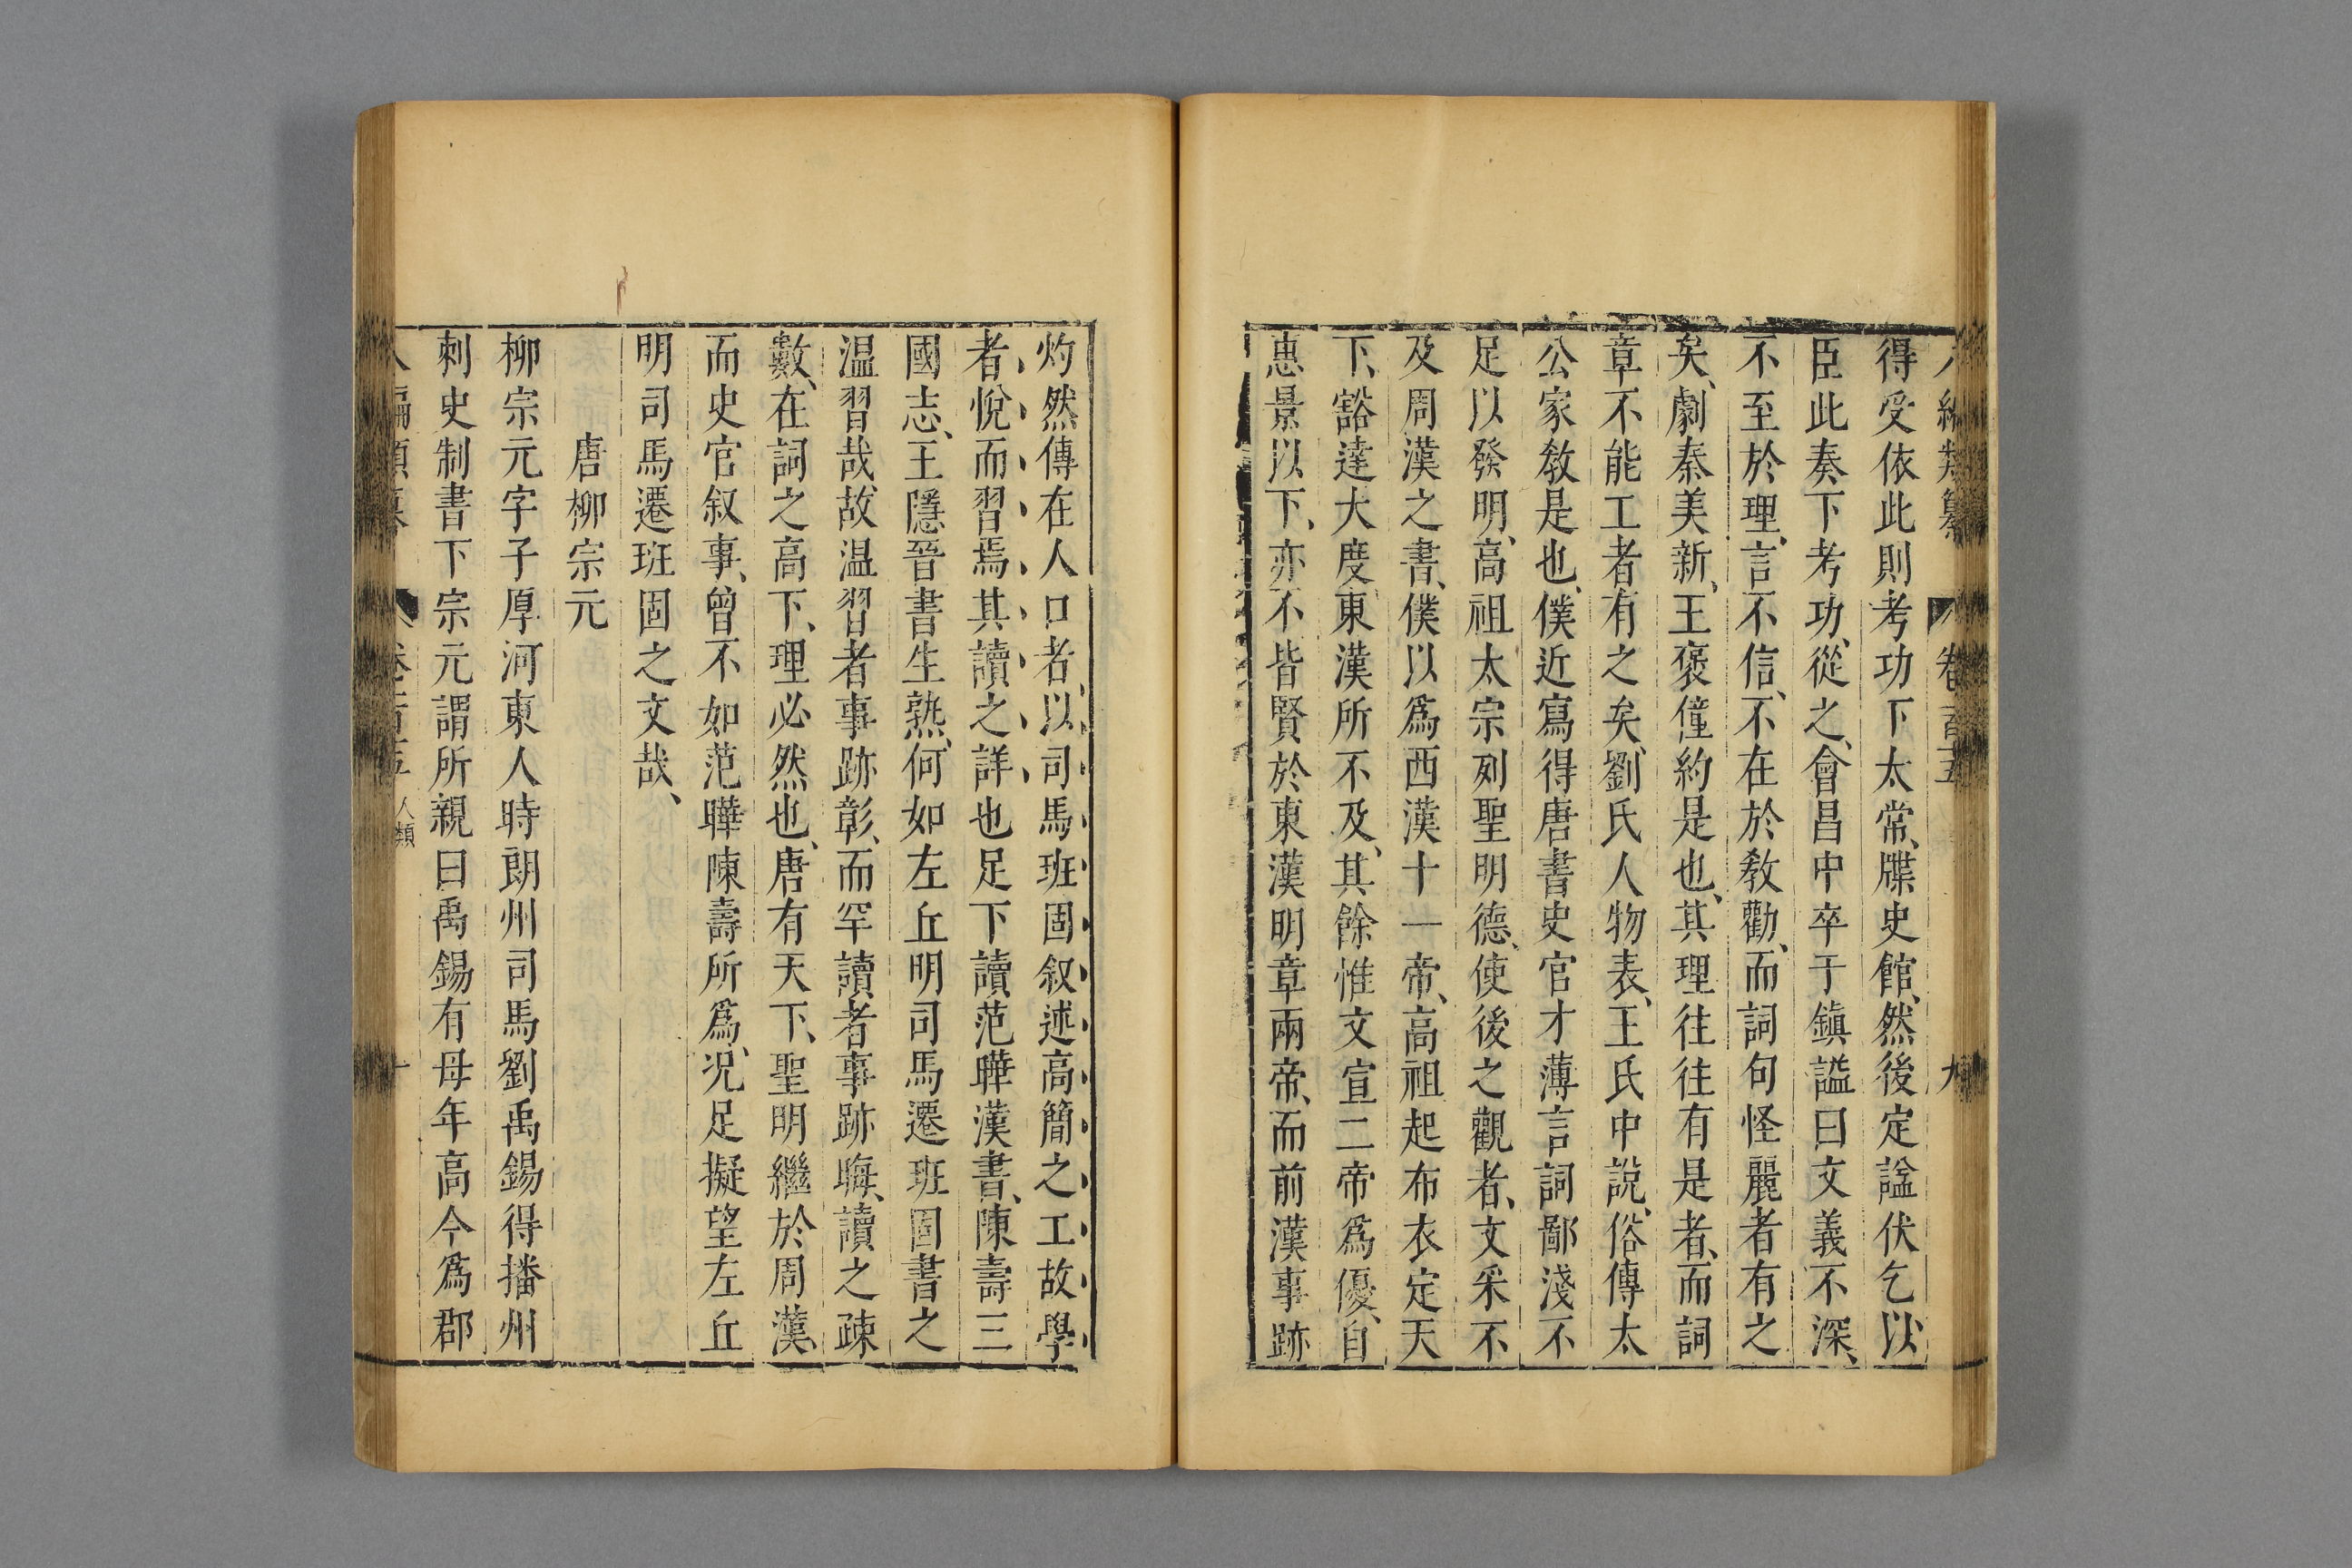 得受依此則考功下太常、牒史館、然後定謚伏乞以
臣此奏下考功、從之、會昌中卒于鎮謚曰文義不深、
不至於理、言不信、不在於教勸、而詞句怪麗者有之
矣、劇秦美新、王褒僮約是也、其理往往有是者、而詞
章不能工者有之矣、劉氏人物表、王氏中說、俗傳太
公家教是也、僕近寫得唐書史官才薄言詞鄙淺不
足以發明、高祖太宗列聖明德、使後之觀者、文采不
及周漢之書、僕以爲西漢十一帝、高祖起布衣定天
下、豁達大度東漢所不及、其餘惟文宣二帝爲優、自
惠景以下、亦不皆賢於東漢明章兩帝、而前漢事跡
灼然傳在人口者、以司馬班固叙述高簡之工故學
者悅而習焉其讀之詳也足下讀范曄漢書、陳壽三
國志、王隱晉書生熟、何如左丘明司馬遷班固書之
温習哉、故温習者事跡彰、而罕讀者事跡晦、讀之疎
數、在詞之高下、理必然也、唐有天下、聖明繼於周漢、
而史官叙事、曾不如范曄陳壽所爲、况足擬望左丘
明司馬遷班固之文哉、
唐柳宗元
柳宗元字子厚河東人時朗州司馬劉禹錫得播州
刺史制書下宗元謂所親曰禹錫有母年高今爲郡